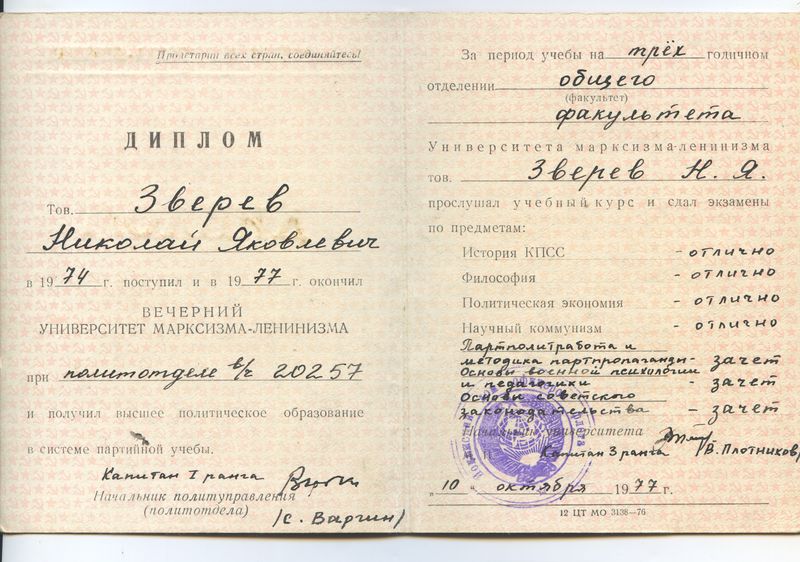 Пролетарии всех стран, соединяйтесь!
ДИПЛОМ
Тов. Зверев
Николай Яковлевич
в 1974 г. поступил и в 1977 г. окончил
ВЕЧЕРНИЙ
УНИВЕРСИТЕТ МАРКСИЗМА-ЛЕНИНИЗМА
при политотделе в/ч 20257
и получил высшее политическое образование
в системе партийной учебы.
Капитан I ранга
Начальник политуправления
(политотдела)
/С. Варгин/
За период учебы на трёх годичном
отделении общего
(факультет)
факультета
Университета марксизма-ленинизма
тов. Зверев Н. Я.
прослушал учебный курс и сдал экзамены
по предметам:
История КПСС - отлично
Философия - отлично
Политическая экономия - отлично
Научный коммунизм - отлично
Партполитработа и
методика партпропаганды - зачет
Основы военной психологии
и педагогики - зачет
Основы советского
законодательства - зачет
Начальник университета
Капитан 3 ранга /В. Плотников/
„10" октября 1977 г.
12 ЦТ МО 3138—76